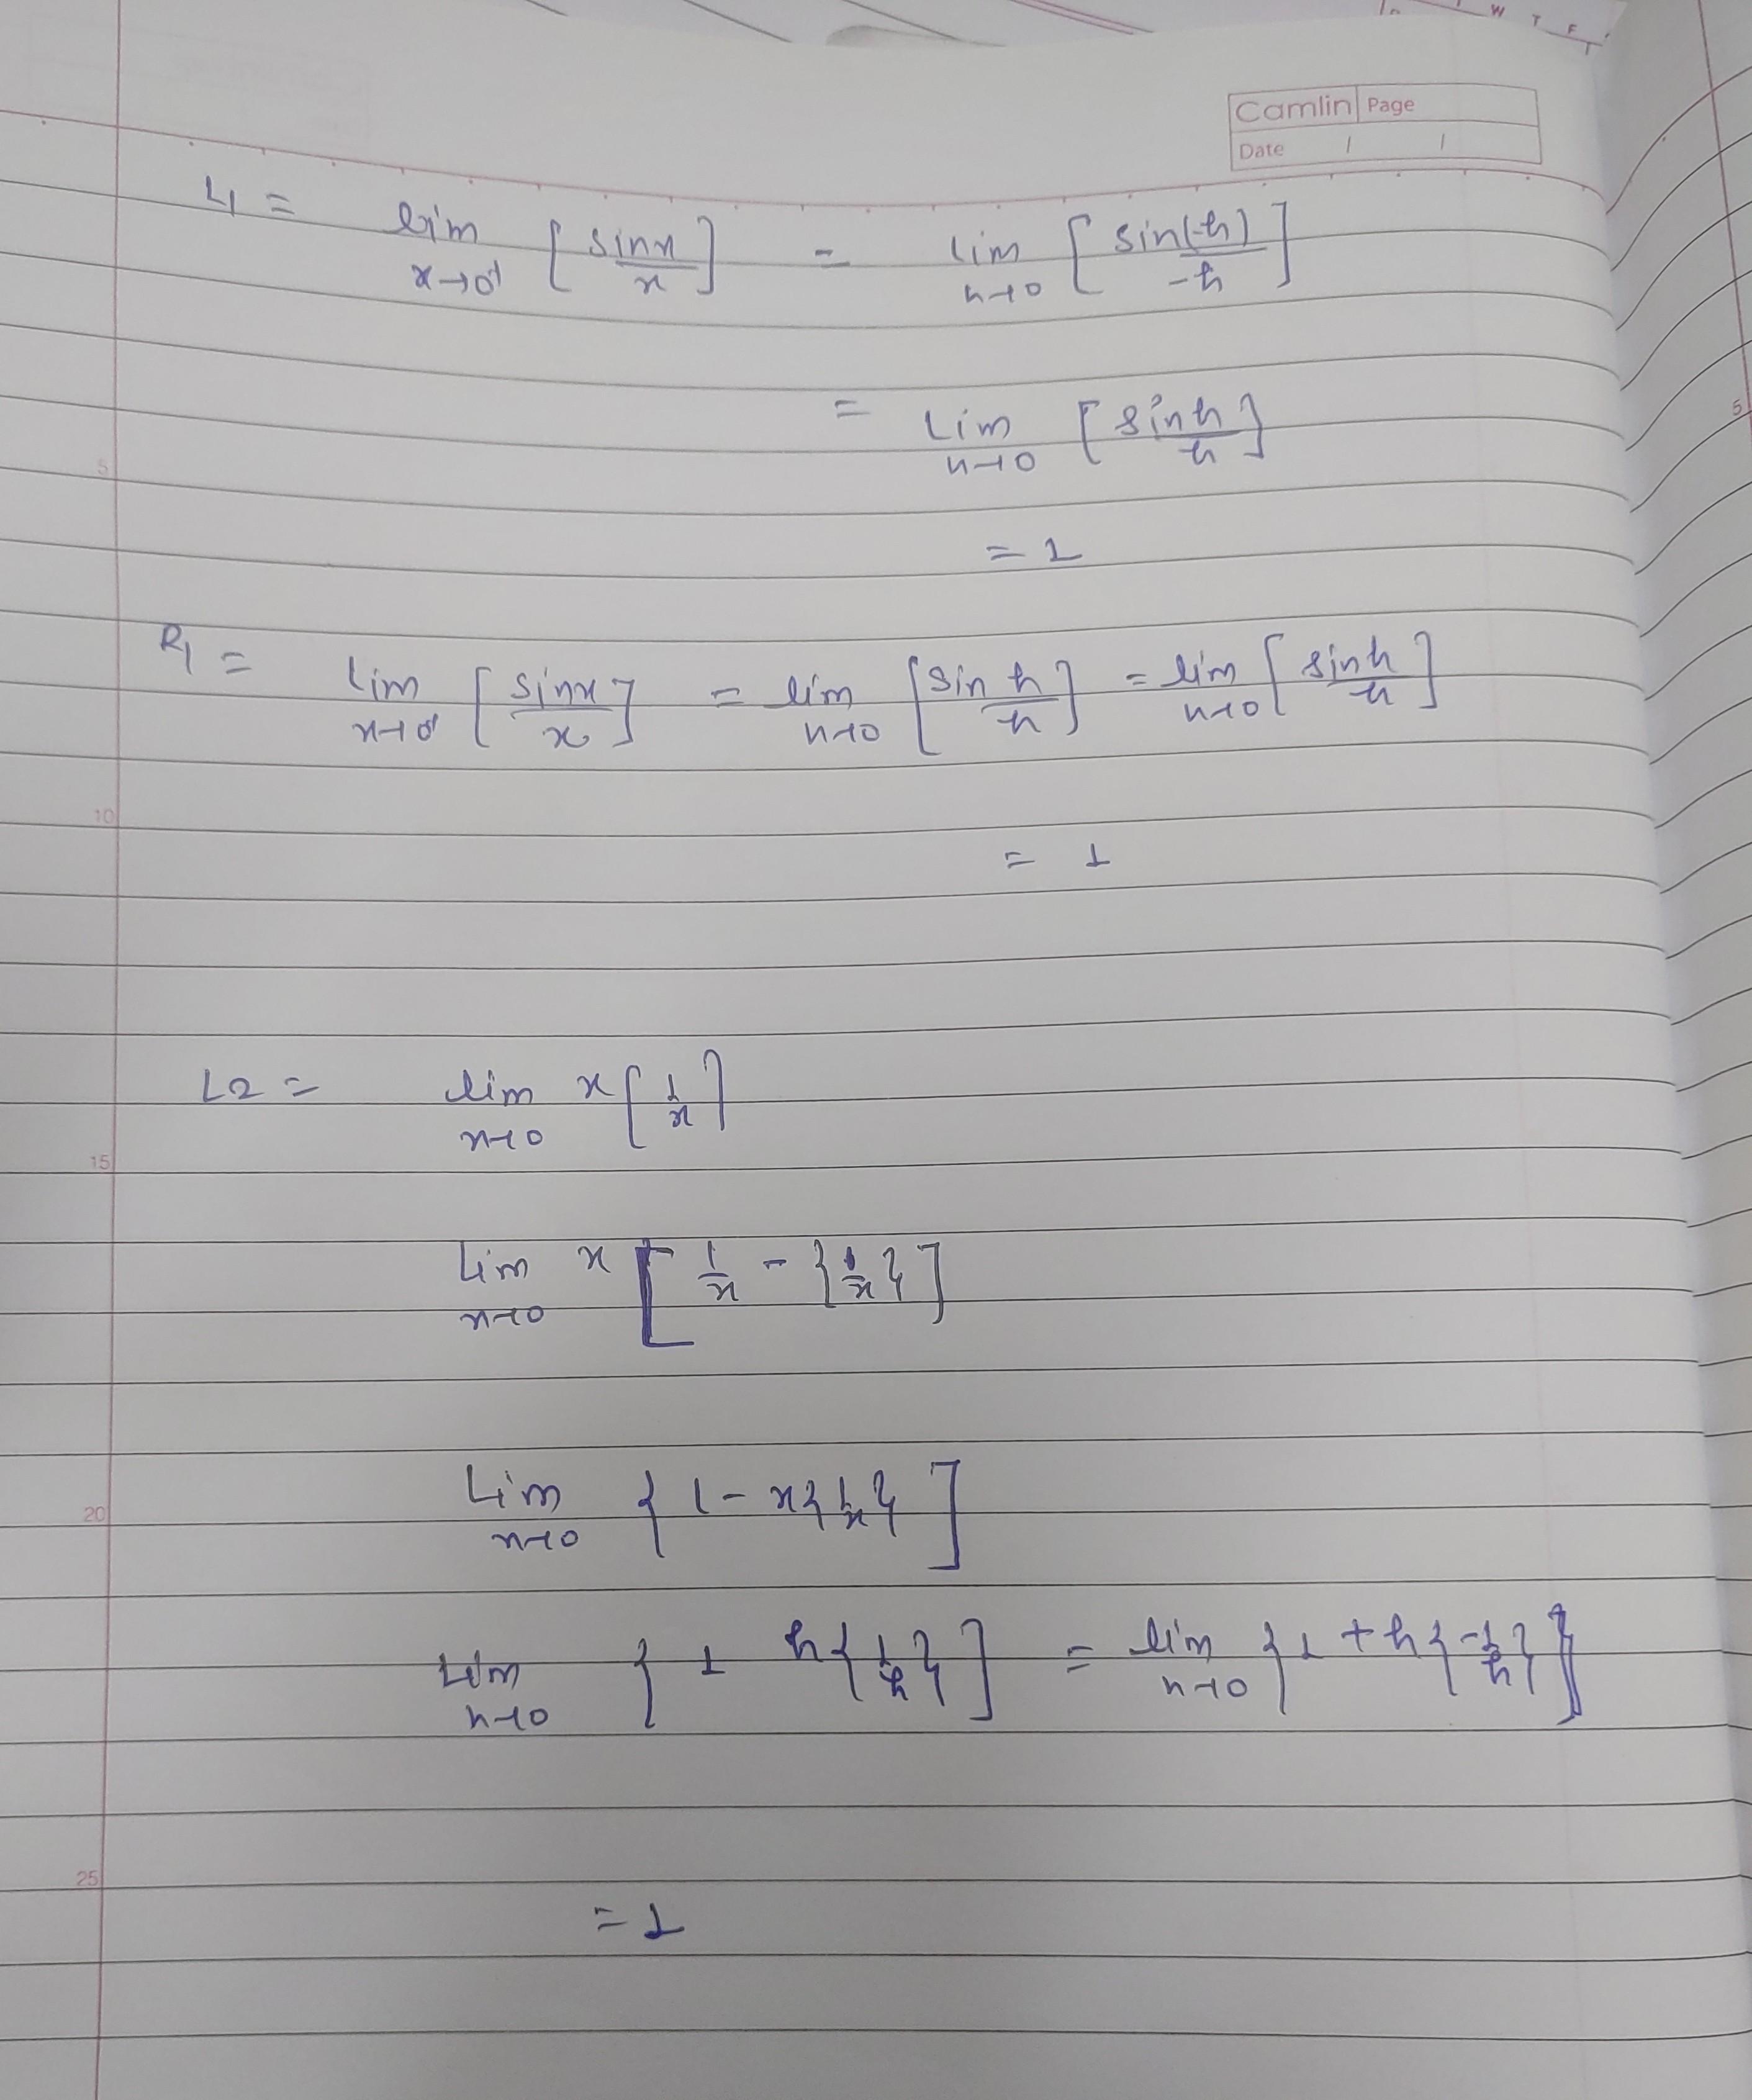 W T F
Camlin Page
Date / /
L1 = lim x→0⁻ [sinx/x] = lim h→0 [sin(-h)/-h]
= Lim h→0 [sinh/h]
5
= 1
R1 = Lim x→0⁺ [sinx/x] = lim h→0 [sin h/h] = lim h→0 [sinh/h]
10
= 1
L2 = lim x→0 x[1/x]
15
Lim x→0 x[1/x - {1/x}]
20
Lim x→0 {1 - x{1/x}]
Lim h→0 { 1 h{1/h}] = lim h→0 {1 + h{-1/h}}
25
= 1
5